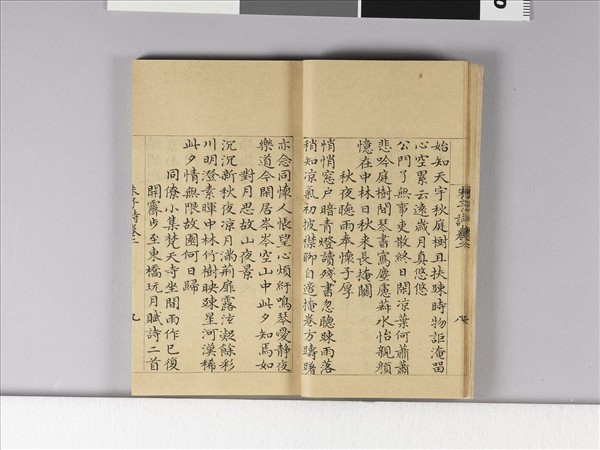 始知天宇秋庭樹且扶踈時物詎淹留
心空累云遠歲月真悠悠
公門了無事吏散終日閒涼葉何蕭蕭
悲吟庭樹間琴書寫塵慮菽水怡親顏
憶在中林日秋来長掩關
秋夜聽雨奉懷子厚
悄悄窓戶暗青燈讀殘書忽聽踈雨落
稍知凉氣初披襟聊自適掩卷方躊躇
亦念同懷人悵望心煩紆鳴琴愛靜夜
樂道今閑居岑岑空山中此夕知焉如
對月思故山夜景
沉沉新秋夜凉月滿荊扉露泫凝餘彩
川明澄素暉中林竹樹映踈星河漢稀
此夕情無限故園何日歸
同僚小集梵天寺坐間雨作已復
開霽步至東橋玩月賦詩二首
朱子詩卷二
九